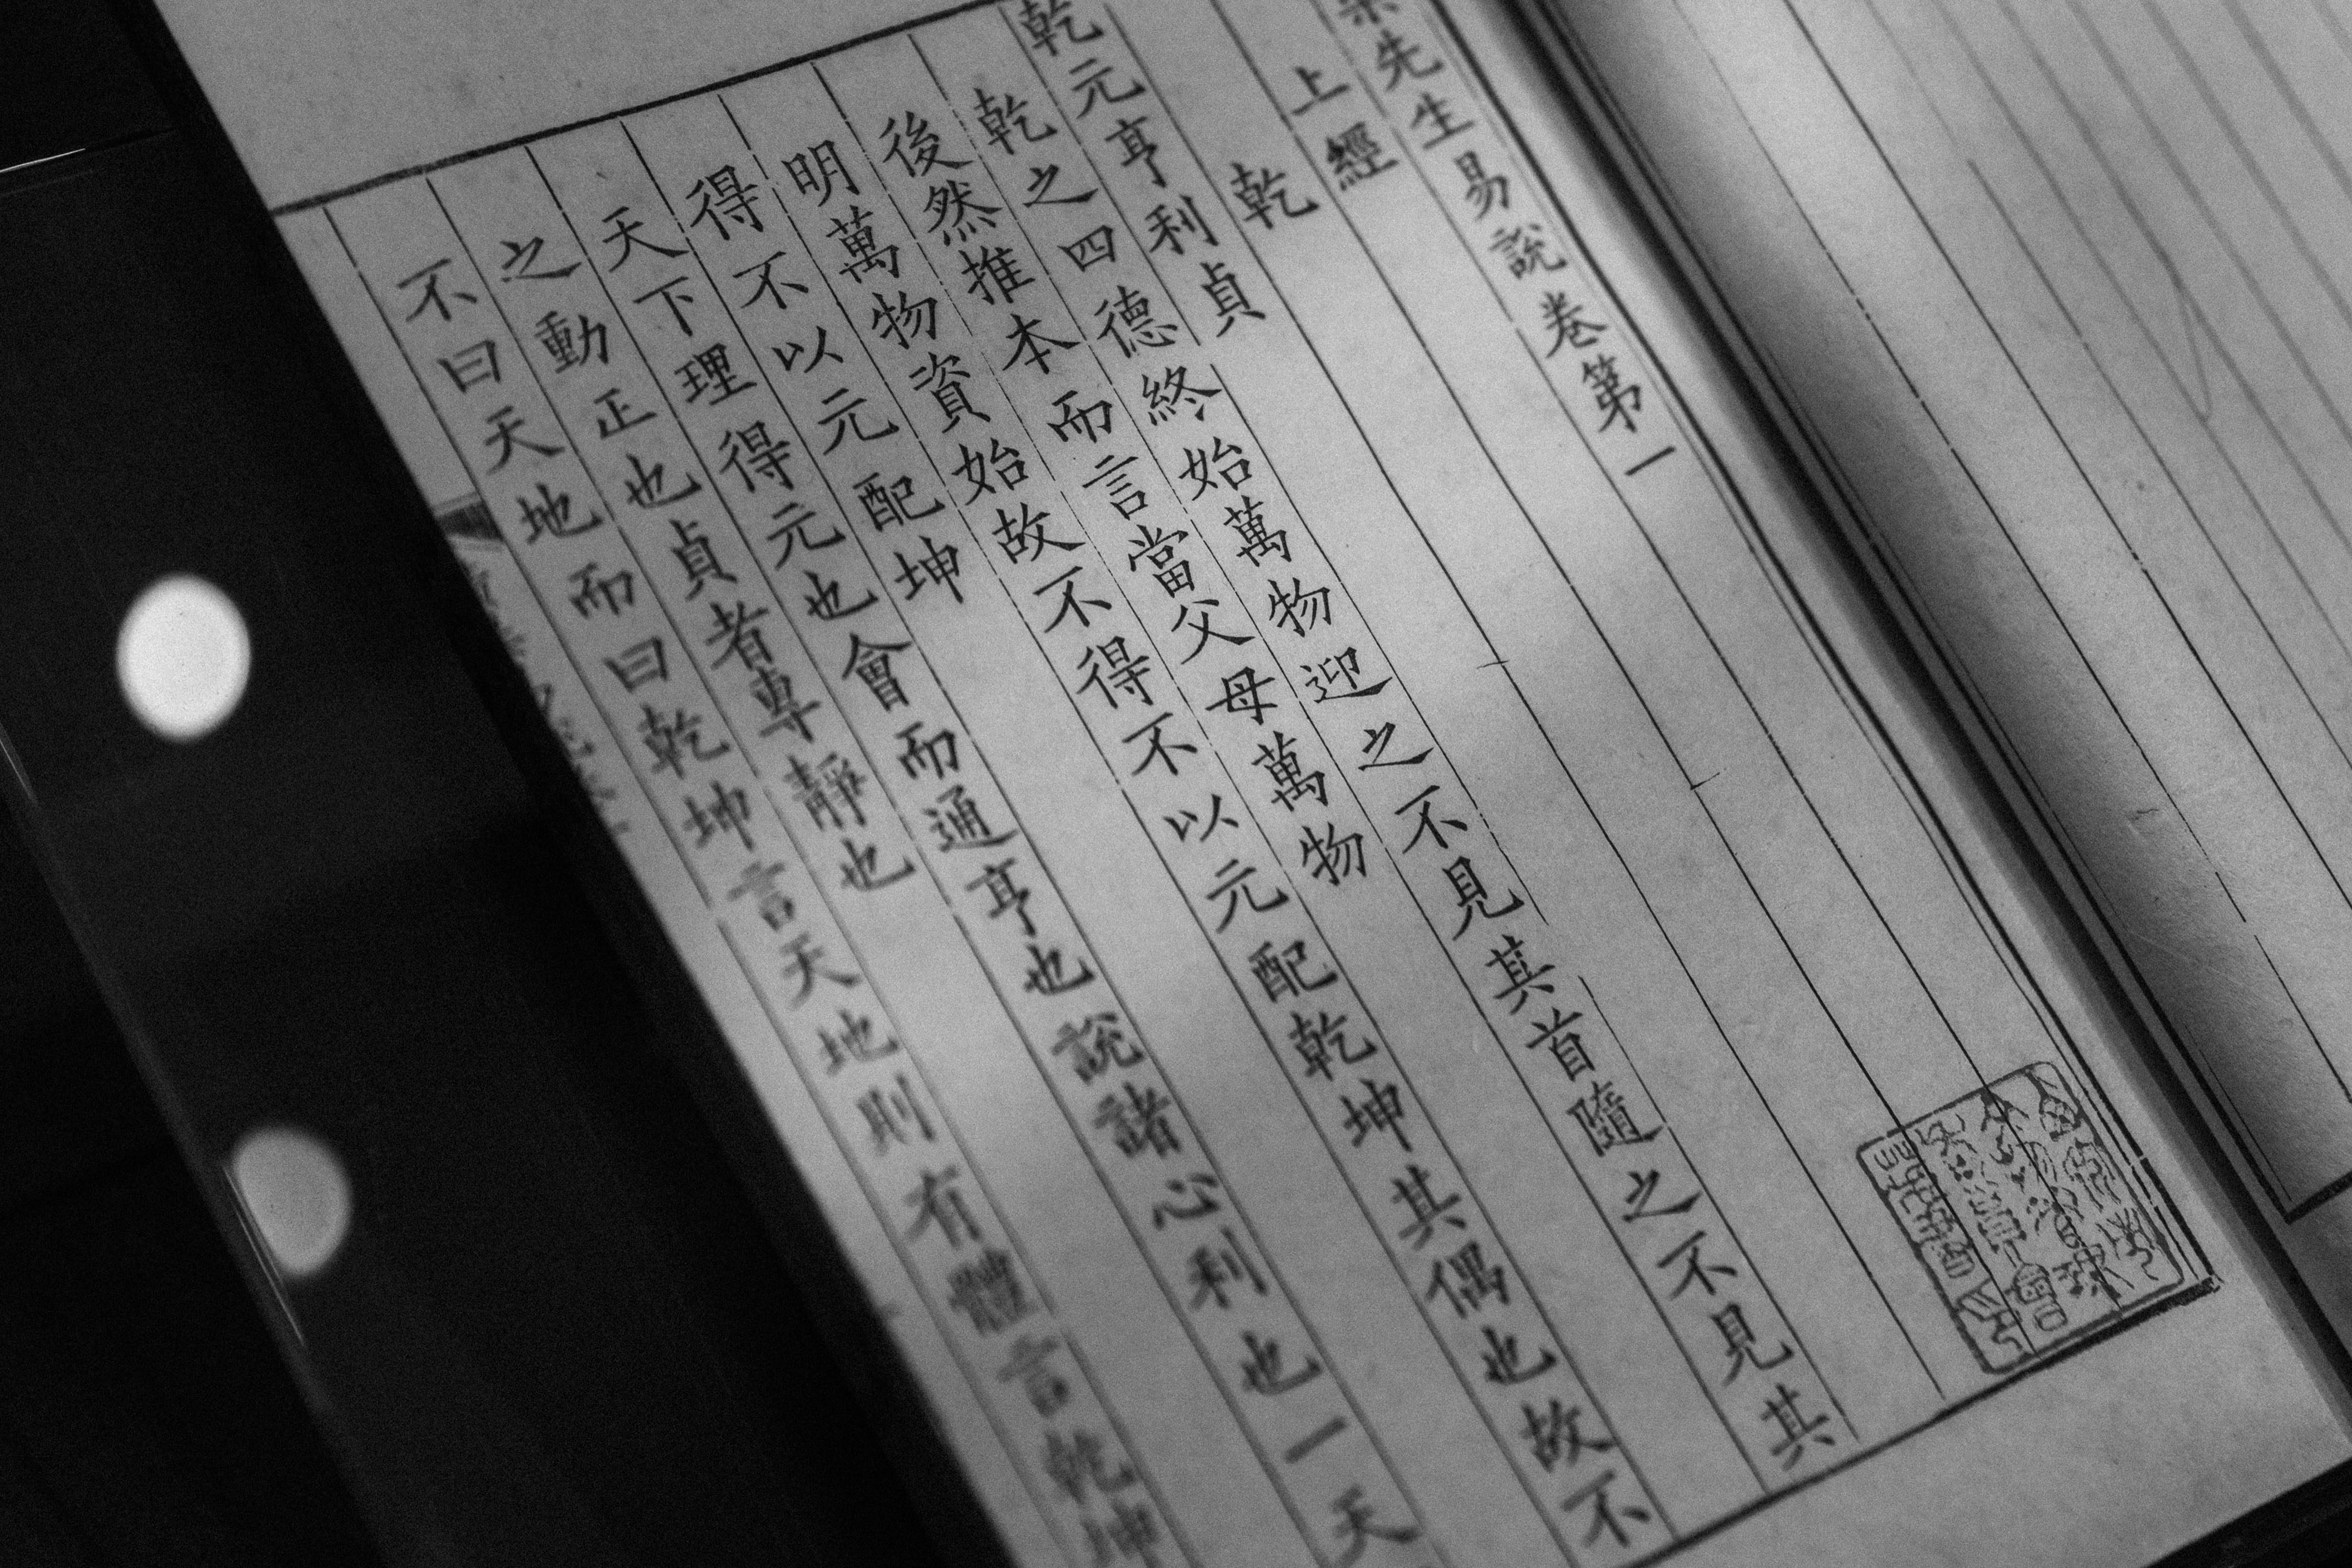 先生易說卷第一
上經
乾
乾元亨利貞
乾之四德終始萬物迎之不見其首隨之不見其
後然推本而言當父母萬物
明萬物資始故不得不以元配乾坤其偶也故不
得不以元配坤
天下理得元也會而通亨也說諸心利也一天
之動正也貞者專靜也
不曰天地而曰乾坤言天地則有體言乾坤